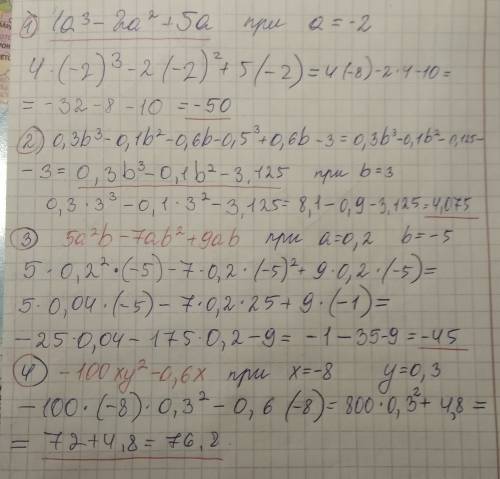 1) 4a³ - 2a² + 5a при a = -2
4 · (-2)³ - 2 (-2)² + 5 (-2) = 4 (-8) - 2 · 4 - 10 =
= -32 - 8 - 10 = -50
2) 0,3b³ - 0,1b² - 0,6b - 0,5³ + 0,6b - 3 = 0,3b³ - 0,1b² - 0,125 -
- 3 = 0,3b³ - 0,1b² - 3,125 при b = 3
0,3 · 3³ - 0,1 · 3² - 3,125 = 8,1 - 0,9 - 3,125 = 4,075
3 5a²b - 7ab² + 9ab при a = 0,2 b = -5
5 · 0,2² · (-5) - 7 · 0,2 · (-5)² + 9 · 0,2 · (-5) =
5 · 0,04 · (-5) - 7 · 0,2 · 25 + 9 · (-1) =
- 25 · 0,04 - 175 · 0,2 - 9 = -1 - 35 - 9 = -45
4 - 100xy² - 0,6x при x = -8 y = 0,3
- 100 · (-8) · 0,3² - 0,6 (-8) = 800 · 0,3² + 4,8 =
= 72 + 4,8 = 76,8